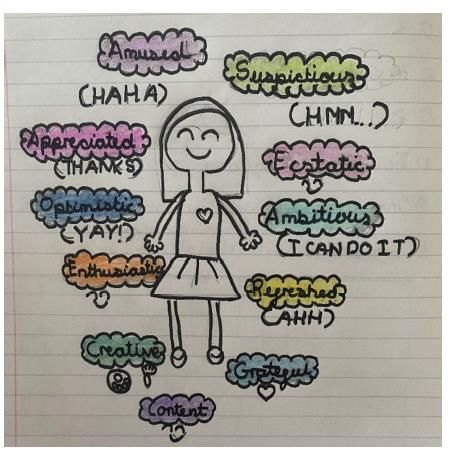 Amused
(HAHA)
Suspictious
(HMN...)
Appreciated
(THANKS)
Ecstatic
Optimistic
(YAY!)
Ambitious
(I CAN DO IT)
Enthusiastic
Refreshed
(AHH)
Creative
Grateful
Content